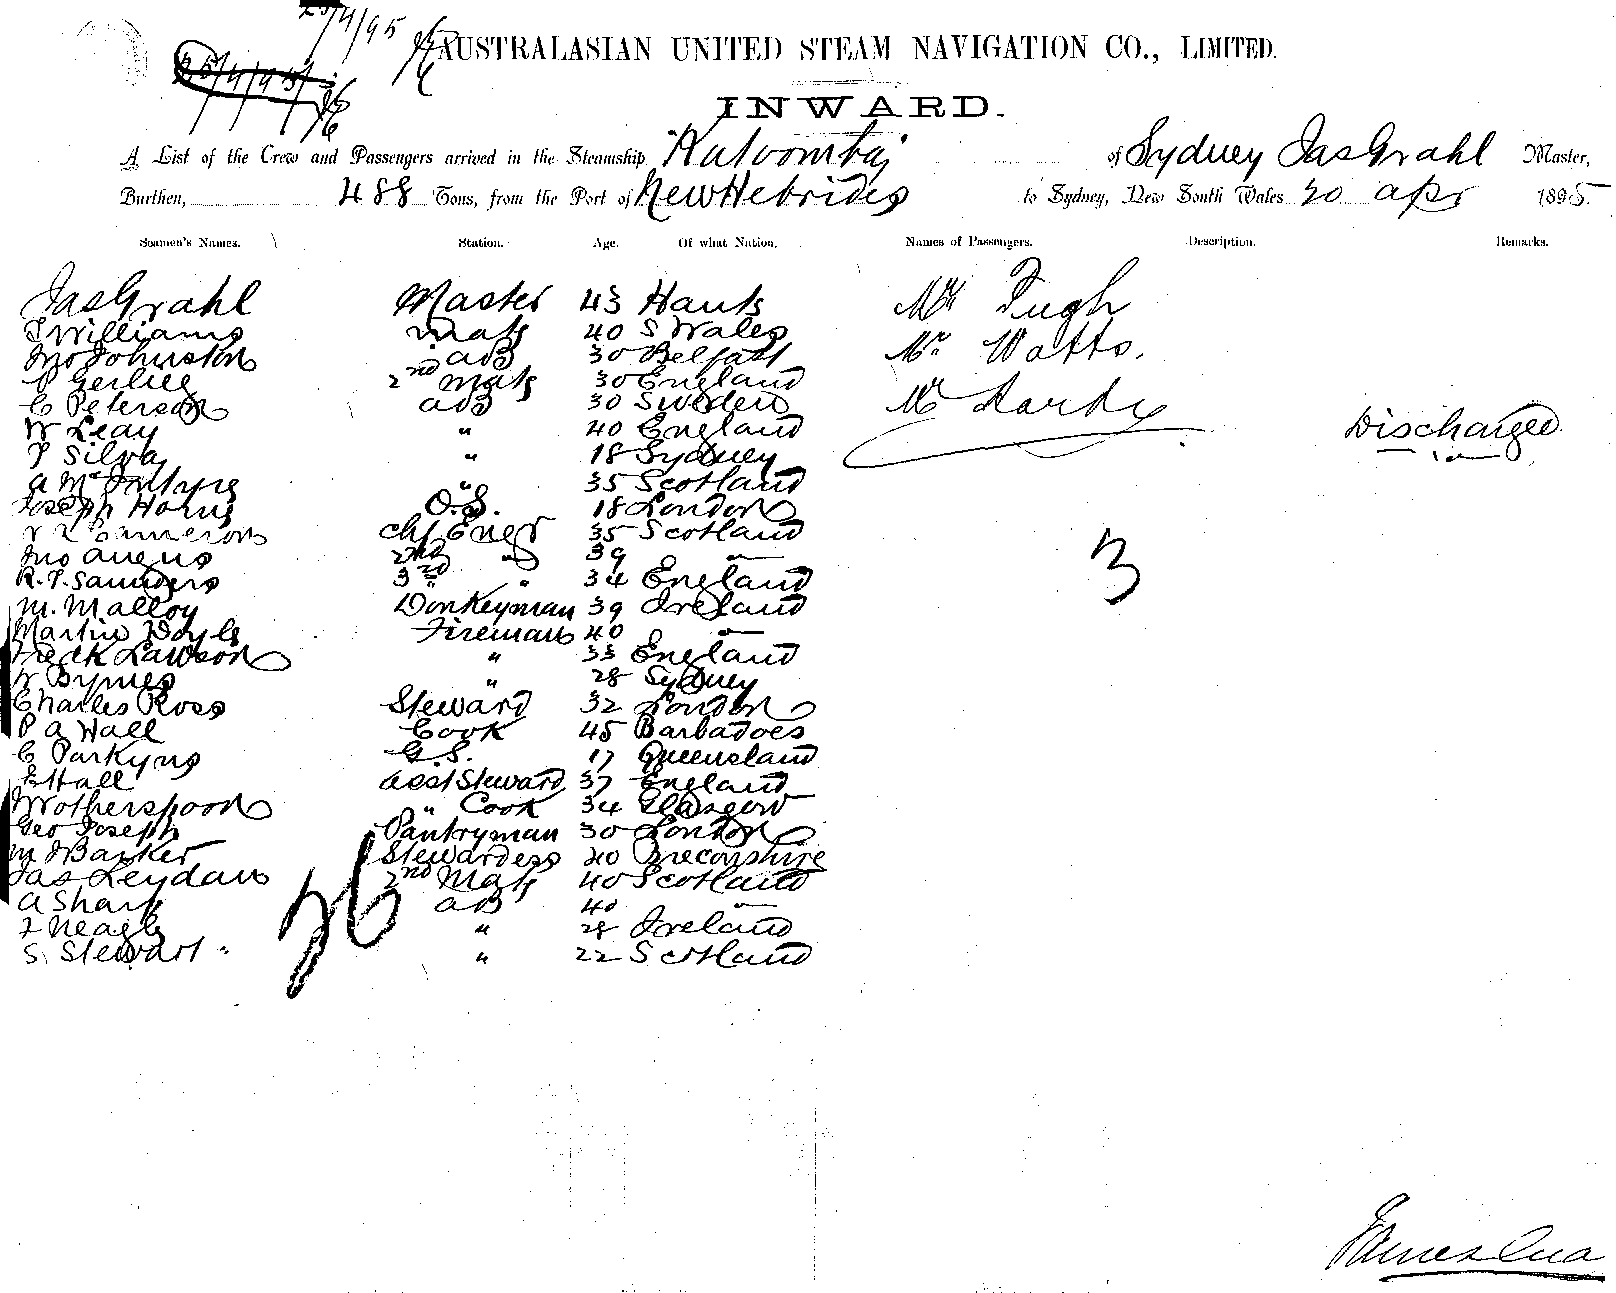 25/4/95
AUSTRALASIAN UNITED STEAM NAVIGATION CO., LIMITED.
25/4/95
INWARD.
A List of the Crew and Passengers arrived in the Steamship Katoomba of Sydney Jas Grahl Master,
Burthen, 488 Tons, from the Port of New Hebrides to Sydney, New South Wales 20 Apr 1895
Seamen's Names. Station. Age. Of what Nation. Names of Passengers. Description. Remarks.
Jas Grahl Master 43 Hants Mr Pugh
T Williams Mate 40 S Wales Mr Watts.
Jno Johnston AB 30 Belfast
P Gerlieg 2nd Mate 30 England Mr Hardy
C Peterson AB 30 Sweden Discharged
W Leay " 40 England
P Silva " 18 Sydney
A McIntyre " 35 Scotland
Joseph Horne O.S. 18 London
Cameron Chf Engr 35 Scotland
Jno Angus 2nd " 39 "
R.T. Saunders 3rd " 34 England
M. Malloy Donkeyman 39 Ireland
Martin Doyle Fireman 40 "
Fredk Lawson " 33 England
W Byrnes " 28 Sydney
Charles Ross Steward 32 London
P A Wall Cook 45 Barbadoes
C Parkyns G.S. 17 Queensland
E Hall Asst Steward 37 England
Wotherspoon " Cook 34 Glasgow
Geo Joseph Pantryman 30 London
M J Barker Stewardess 40 Breconshire
Jas Leydan 2nd Mate 40 Scotland
A Sharp AB 40 "
Neagle " 28 Ireland
S Stewart " 22 Scotland
26
3